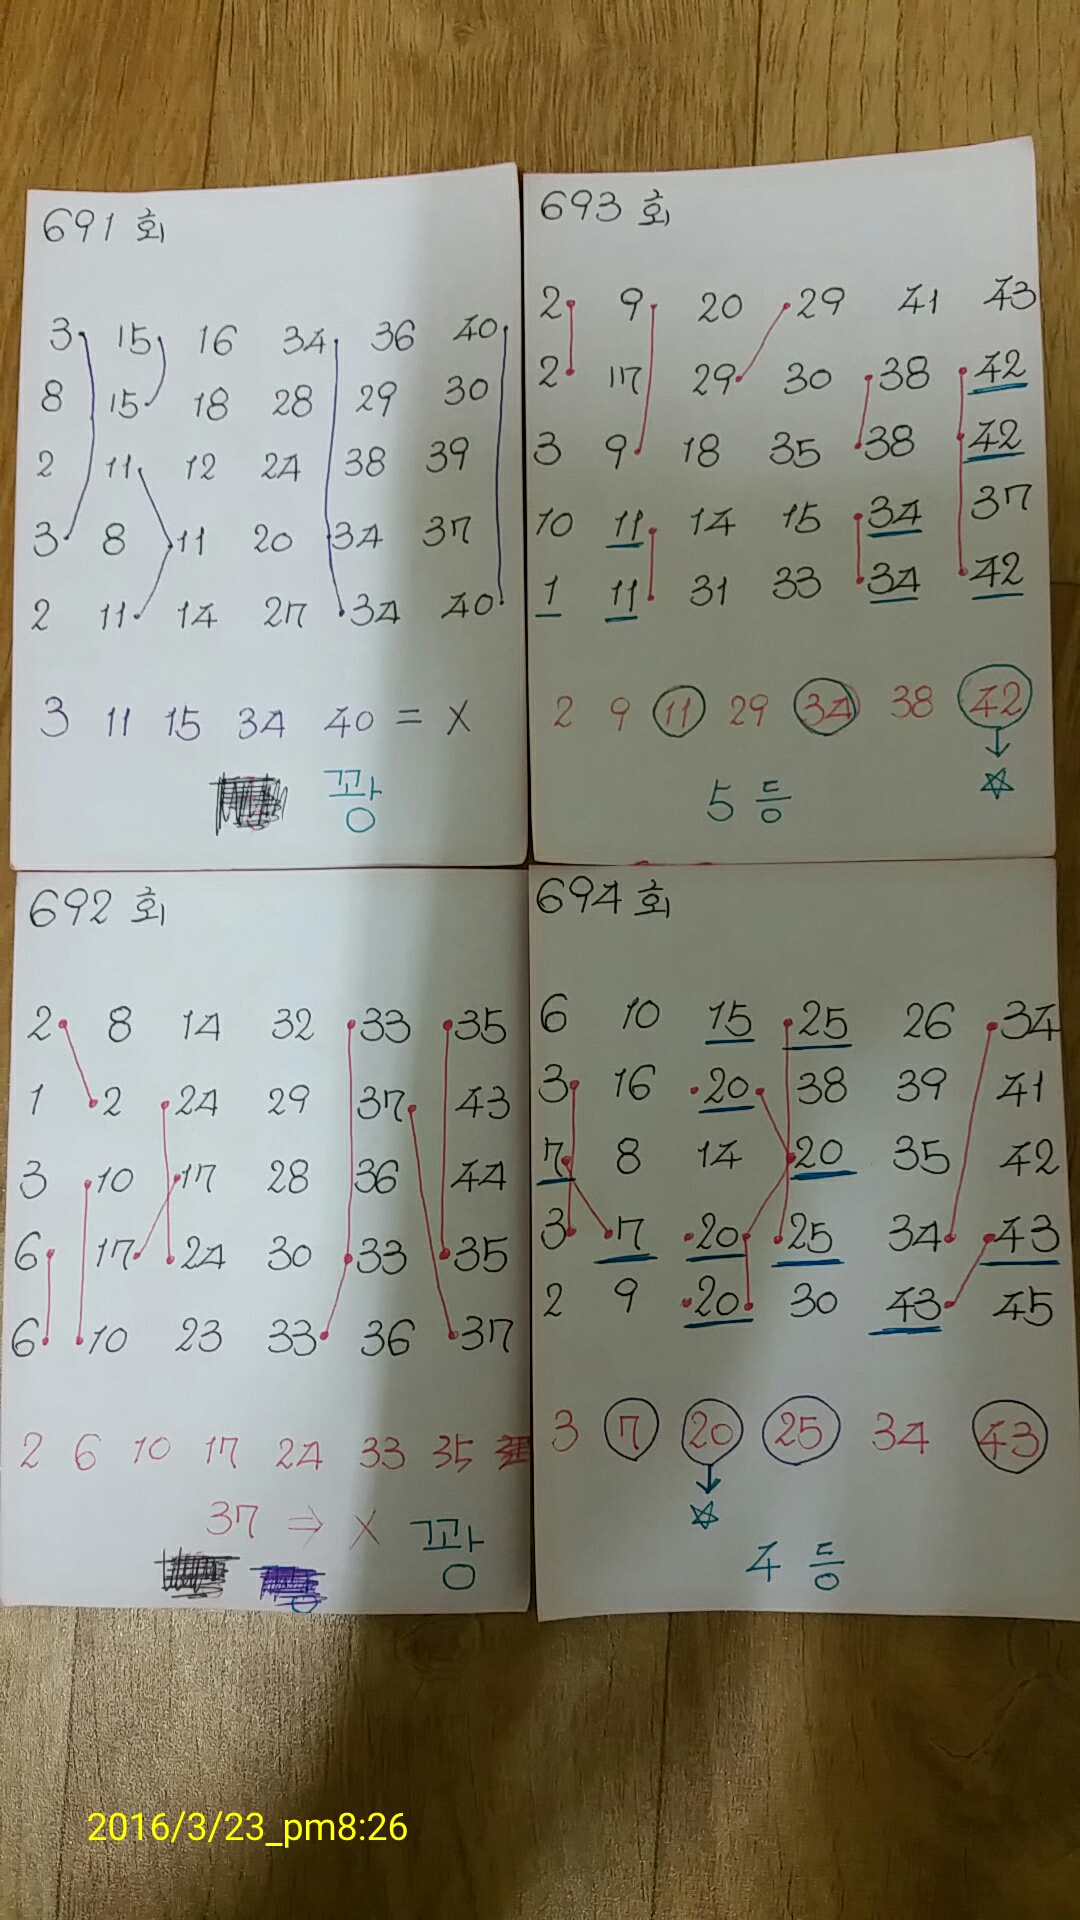 691회
3 15 16 34 36 40
8 15 18 28 29 30
2 11 12 24 38 39
3 8 11 20 34 37
2 11 14 27 34 40
3 11 15 34 40 = X
꽝
693회
2 9 20 29 41 43
2 17 29 30 38 42
3 9 18 35 38 42
10 11 14 15 34 37
1 11 31 33 34 42
2 9 11 29 34 38 42
↓
☆
5등
692회
2 8 14 32 33 35
1 2 24 29 37 43
3 10 17 28 36 44
6 17 24 30 33 35
6 10 23 33 36 37
2 6 10 17 24 33 35
37 ⇒ X 꽝
694회
6 10 15 25 26 34
3 16 20 38 39 41
7 8 14 20 35 42
3 7 20 25 34 43
2 9 20 30 43 45
3 7 20 25 34 43
↓
☆
4등
2016/3/23_pm8:26